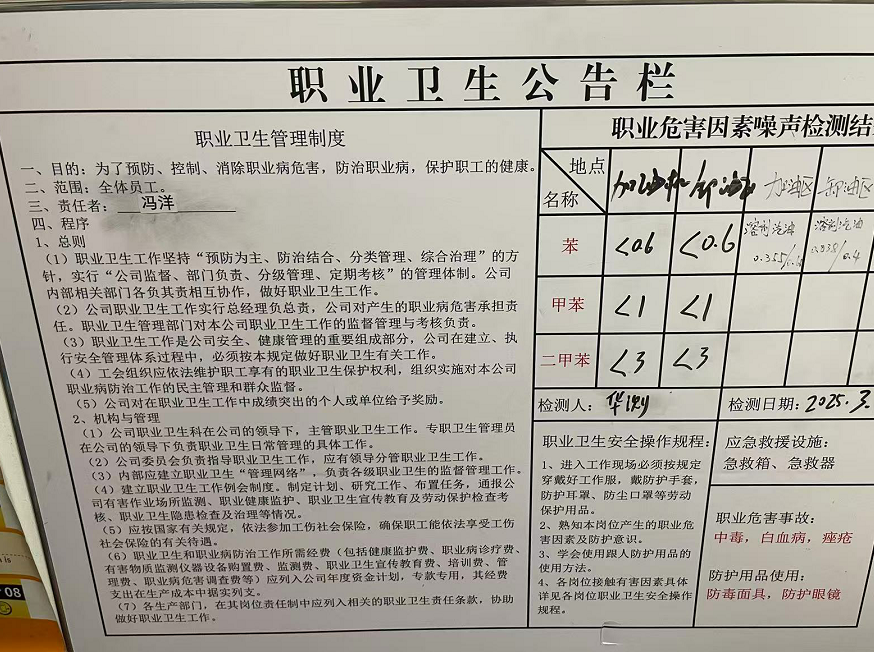 职业卫生公告栏
职业卫生管理制度
一、目的：为了预防、控制、消除职业病危害，防治职业病，保护职工的健康。
二、范围：全体员工。
三、责任者：冯洋
四、程序
1、总则
（1）职业卫生工作坚持“预防为主、防治结合、分类管理、综合治理”的方
针，实行“公司监督、部门负责、分级管理、定期考核”的管理体制。公司
内部相关部门各负其责相互协作，做好职业卫生工作。
（2）公司职业卫生工作实行总经理负总责，公司对产生的职业病危害承担责
任。职业卫生管理部门对本公司职业卫生工作的监督管理与考核负责。
（3）职业卫生工作是公司安全、健康管理的重要组成部分，公司在建立、执
行安全管理体系过程中，必须按本规定做好职业卫生有关工作。
（4）工会组织应依法维护职工享有的职业卫生保护权利，组织实施对本公司
职业病防治工作的民主管理和群众监督。
（5）公司对在职业卫生工作中成绩突出的个人或单位给予奖励。
2、机构与管理
（1）公司职业卫生科在公司的领导下，主管职业卫生工作。专职卫生管理员
在公司的领导下负责职业卫生日常管理的具体工作。
（2）公司委员会负责指导职业卫生工作，应有领导分管职业卫生工作。
（3）内部应建立职业卫生“管理网络”，负责各级职业卫生的监督管理工作。
（4）建立职业卫生工作例会制度。制定计划、研究工作、布置任务，通报公
司有害作业场所监测、职业健康监护、职业卫生宣传教育及劳动保护检查考
核、职业卫生隐患检查及治理等情况。
（5）应按国家有关规定，依法参加工伤社会保险，确保职工能依法享受工伤
社会保险的有关待遇。
（6）职业卫生和职业病防治工作所需经费（包括健康监护费、职业病诊疗费、
有害物质监测仪器设备购置费、监测费、职业卫生宣传教育费、培训费、管
理费、职业病危害调查费等）应列入公司年度资金计划，专款专用，其经费
支出在生产成本中据实列支。
（7）各生产部门，在其岗位责任制中应列入相关的职业卫生责任条款，协助
做好职业卫生工作。
职业危害因素噪声检测结
地点
名称
加油机 卸油区 加油区 卸油区
苯 <0.6 <0.6 溶剂汽油 溶剂汽油
甲苯 <1 <1
二甲苯 <3 <3
检测人：
检测日期：2025.3.
职业卫生安全操作规程：
1、进入工作现场必须按规定
穿戴好工作服，戴防护手套，
防护耳罩、防尘口罩等劳动
保护用品。
2、熟知本岗位产生的职业危
害因素及防护意识。
3、学会使用跟人防护用品的
使用方法。
4、各岗位接触有害因素具体
详见各岗位职业卫生安全操作
规程。
应急救援设施：
急救箱、急救器
职业危害事故：
中毒，白血病，痤疮
防护用品使用：
防毒面具，防护眼镜
08